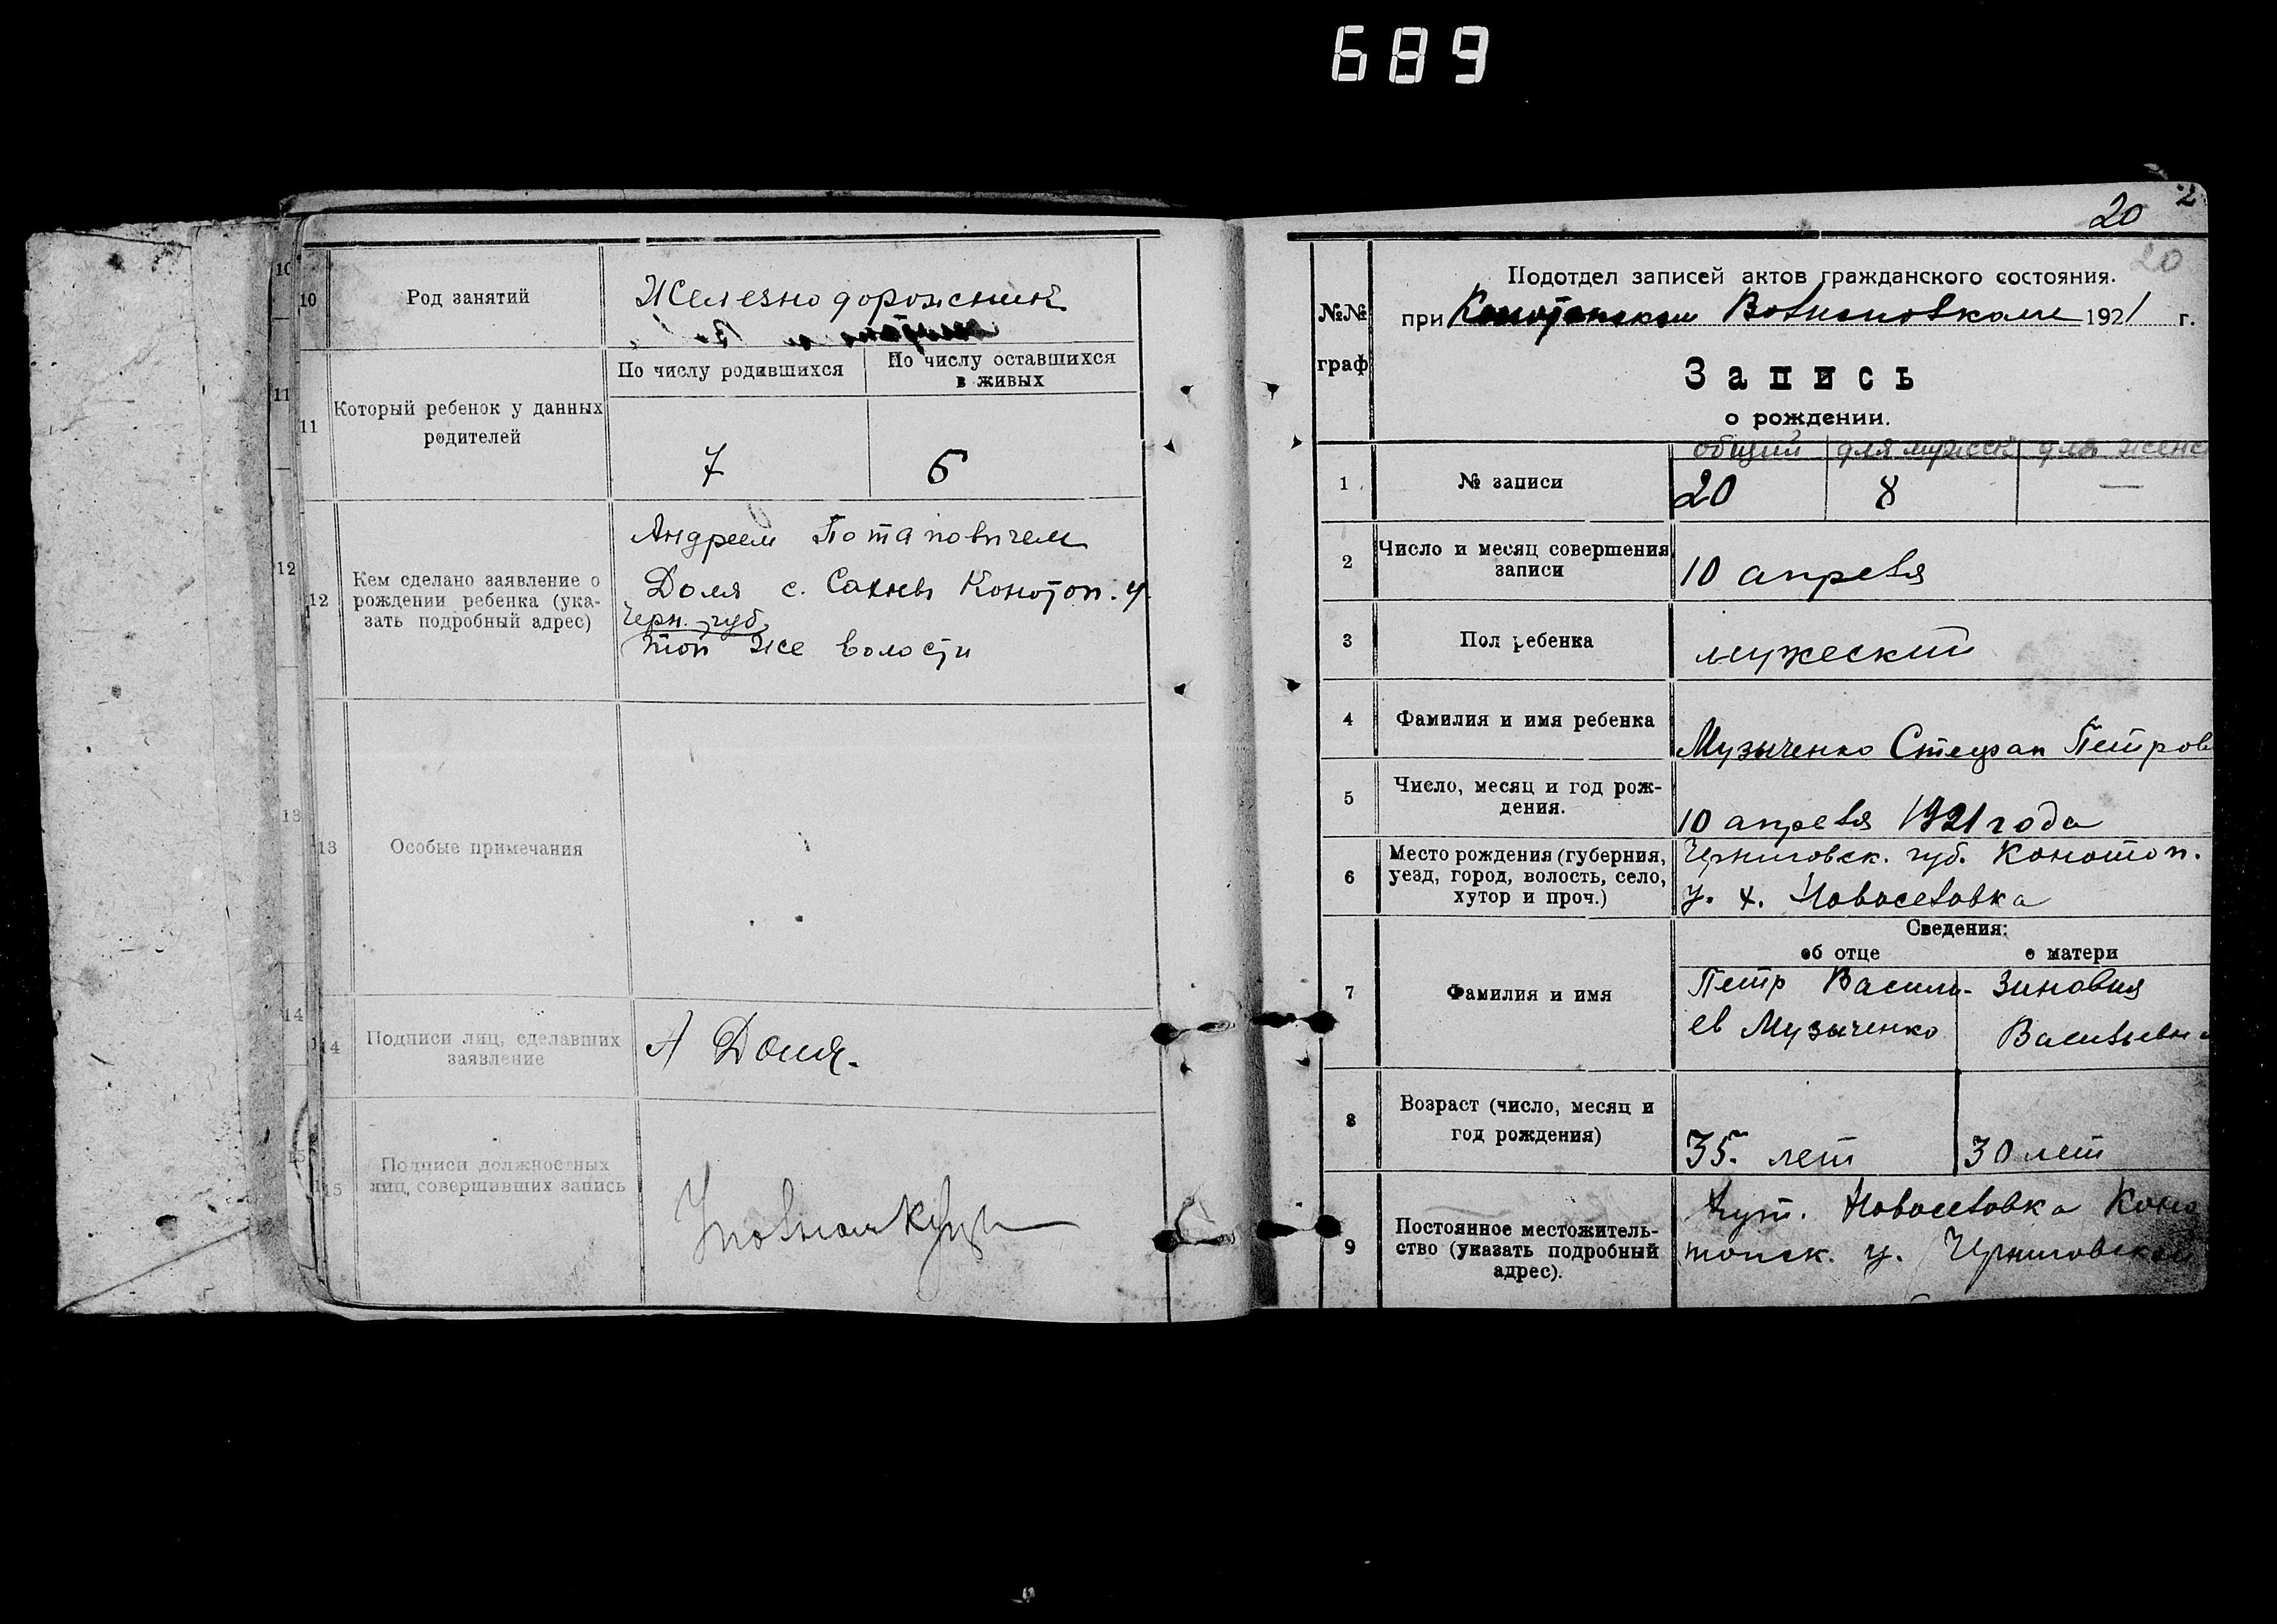 689
10
Род занятий
Железнодорожник
11
Который ребенок у данных
родителей
По числу родившихся
По числу оставшихся
в живых
7
6
12
Кем сделано заявление о
рождении ребенка (ука-
зать подробный адрес)
Андреем Потаповичем
Доля с. Сахны Конотоп. у.
Черн. губ.
той же волости
13
Особые примечания
14
Подписи лиц, сделавших
заявление
А Доля.
15
Подписи должностных
лиц, совершивших запись
20
20
№№
граф
Подотдел записей актов гражданского состояния.
при Конотопском 1921 г.
Запись
о рождении.
общий для мужск для женс
1
№ записи
20 8 —
2
Число и месяц совершения
записи
10 апреля
3
Пол ребенка
мужеский
4
Фамилия и имя ребенка
Музыченко Стефан Петров
5
Число, месяц и год рож-
дения.
10 апреля 1921 года
6
Место рождения (губерния,
уезд, город, волость, село,
хутор и проч.)
Черниговск. губ. Конотоп.
у. х. Новоселовка
Сведения:
об отце
о матери
7
Фамилия и имя
Петр Василь-
ев Музыченко
Зиновия
Васильевна
8
Возраст (число, месяц и
год рождения)
35. лет
30 лет
9
Постоянное местожитель-
ство (указать подробный
адрес).
Хут. Новоселовка Коно
топск. у. Черниговской